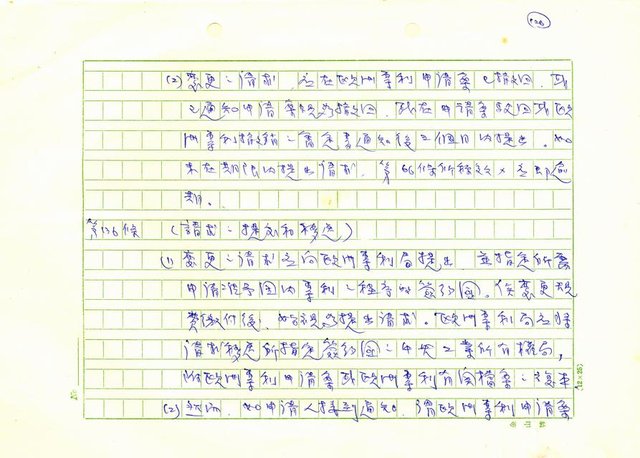 (2) 變更之請求,應在歐洲專利申請案已撤回,或
已通知申請案視為撤回,或在申請案駁回或歐
洲專利撤銷之審定書通知後三個月內提出。如
未在期限內提出請求,第66條所稱之效力應即屆
期。
第136條 (請求之提交和移送)
(1) 變更之請求應向歐洲專利局提出,並指定所
申請 國內專利之程序的簽約國。俟變更規
費繳付後,始視為提出請求。歐洲專利局應將
請求移送所指定簽約國之中央工業所有權局,
附歐洲專利申請案或歐洲專利有關檔案之複本
(2) 然而,如申請人接到通知,謂歐洲專利申請案
(12×25)